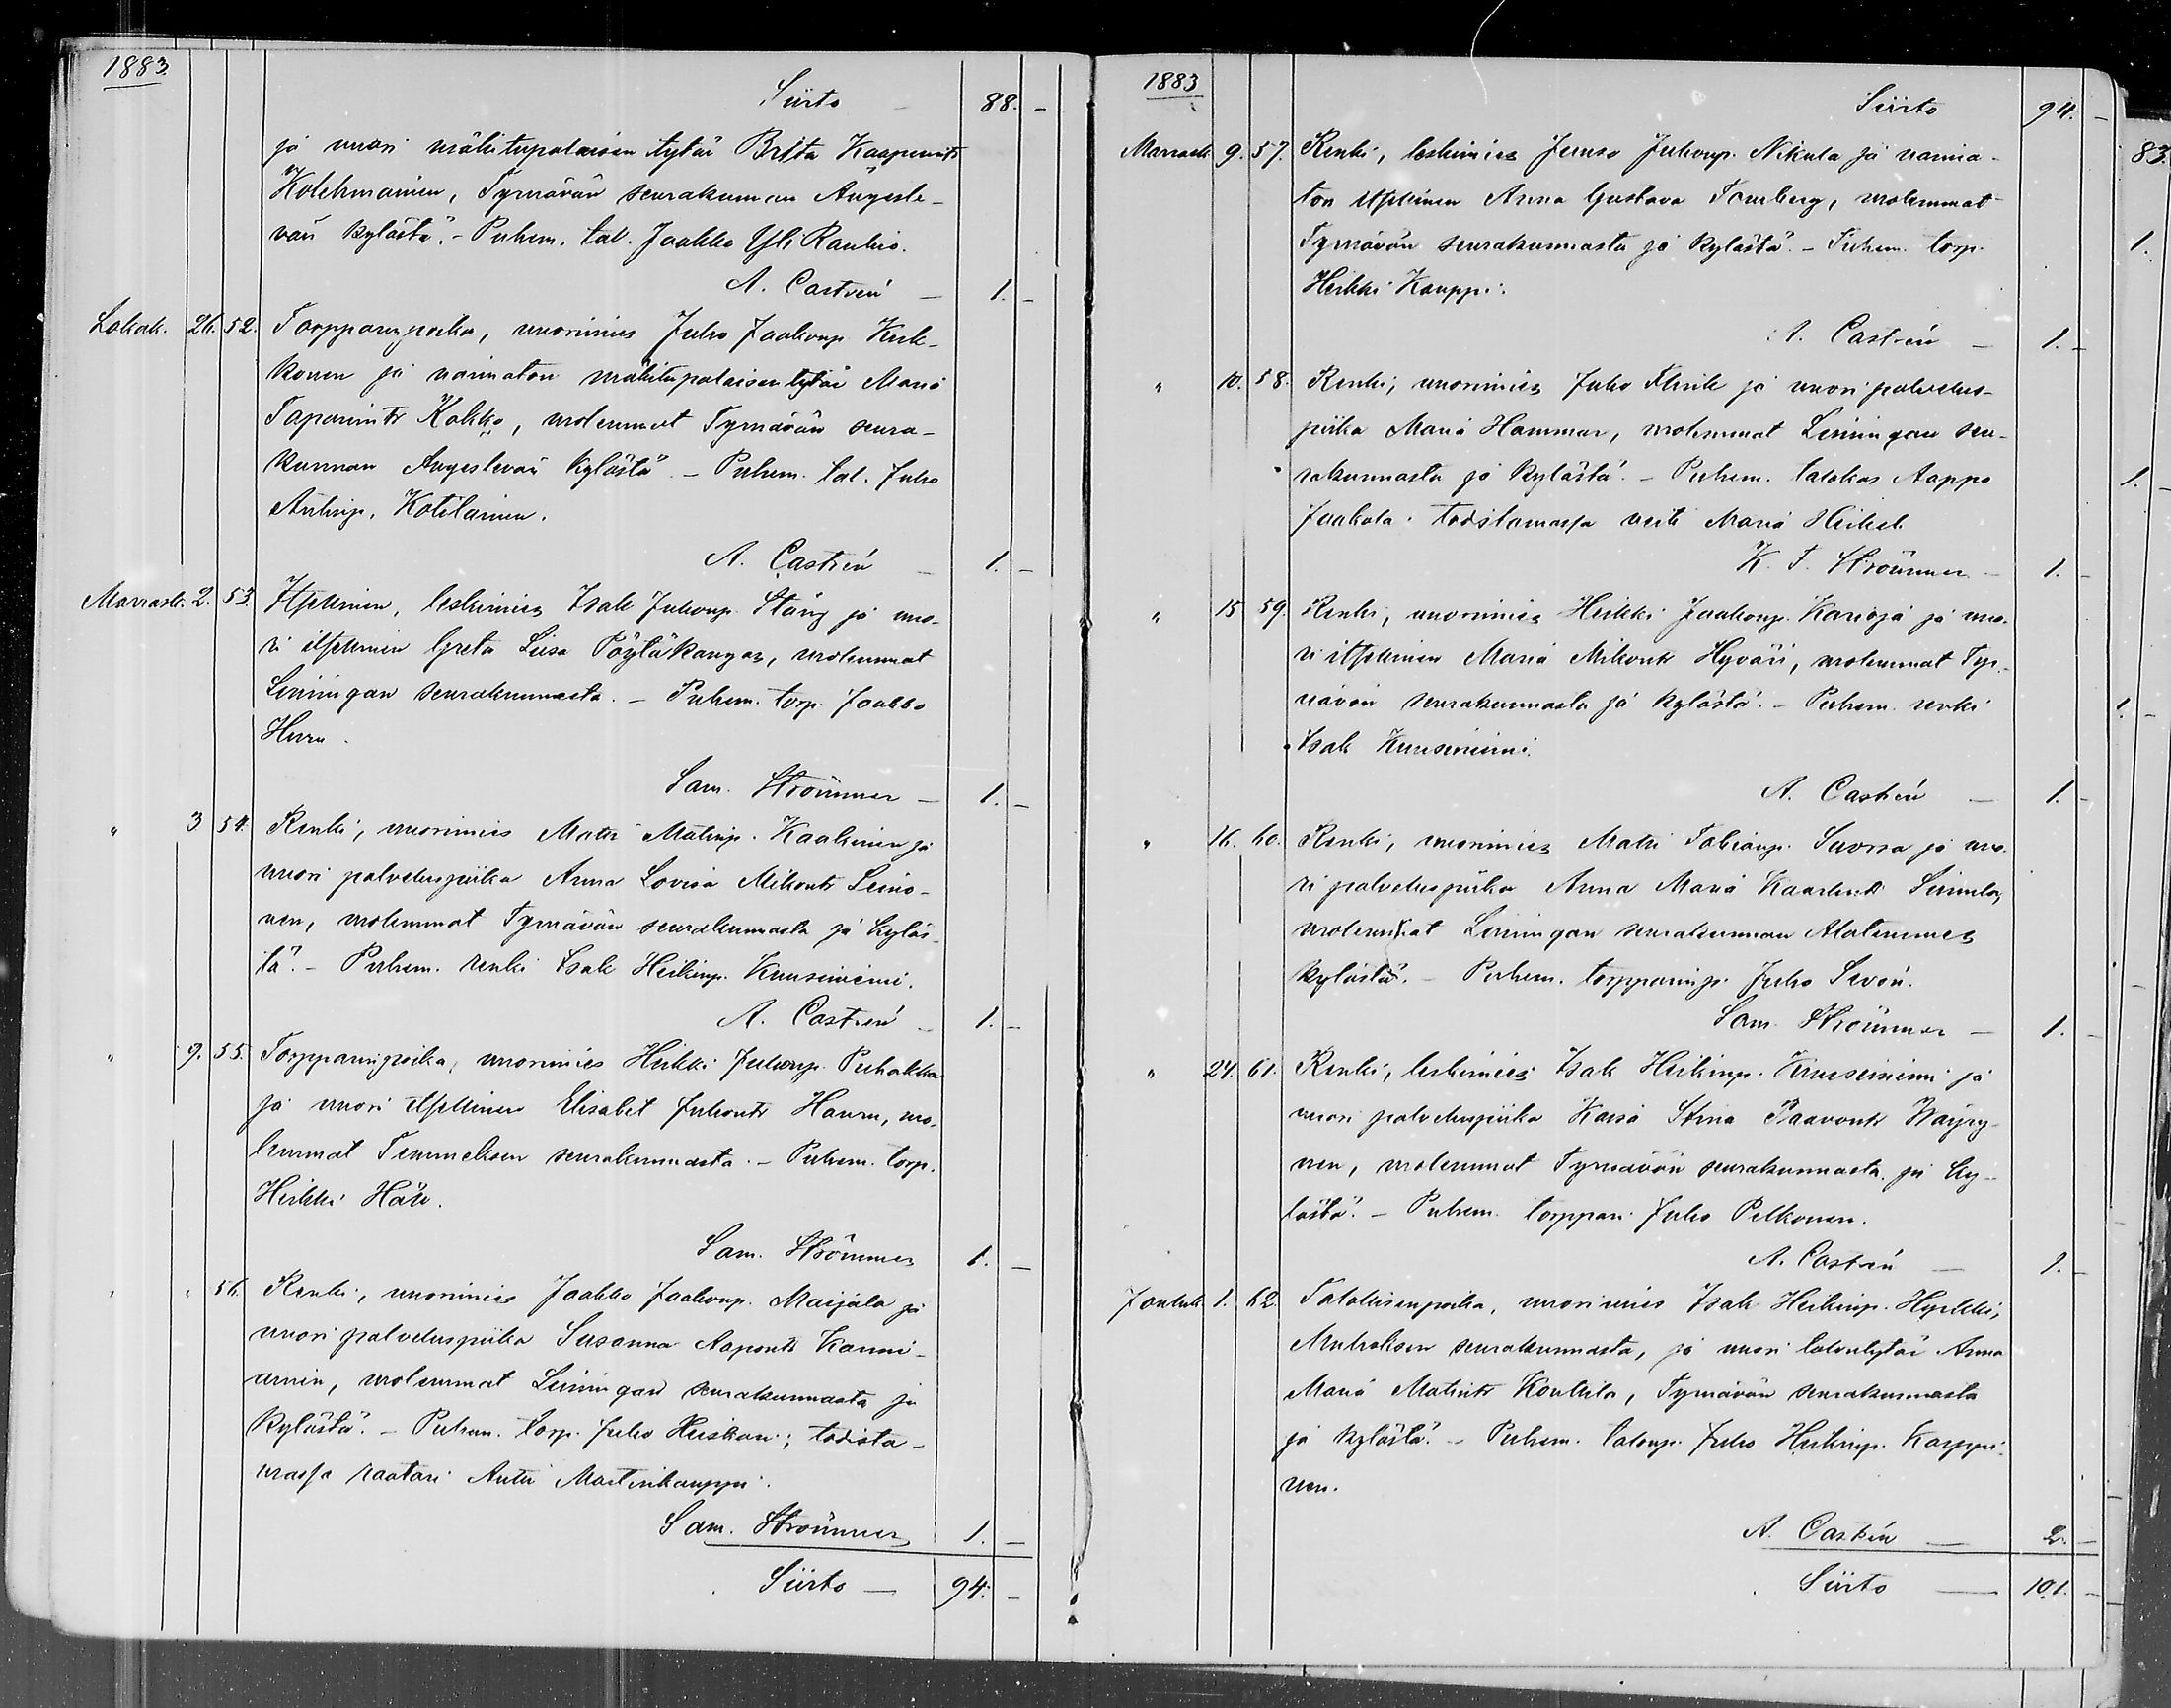 1883
Siirto 88. –
ja nuori mäkitupalaisen tytär Brita Kaapuntr
Kolehmainen, Tyrnävän seurakunnan Angesle-
vän kylästä. – Puhem. tal. Jaakko Yli Raukio.
A. Castrén – 1. –
Lokak. 26. 52. Torpparinpoika, nuorimies Juho Jaakonp. Kuk-
konen ja naimaton mäkitupalaisentytär Maria
Tapanintr Kokko, molemmat Tyrnävän seura-
kunnan Angeslevän kylästä. – Puhem. tal. Juho
Antinp. Kotilainen.
A. Castrén – 1. –
Marrask. 2. 53. Itsellinen, leskimies Isak Juhonp. Stång ja nuo-
ri itsellinen Greta Liisa Pöyläkangas, molemmat
Limingan seurakunnasta. – Puhem. torp. Jaakko
Huru.
Sam. Strömmer – 1. –
" 3 54. Renki, nuorimies Matti Matinp. Kaakinen ja
nuori palveluspiika Anna Lovisa Mikontr Leino-
nen, molemmat Tyrnävän seurakunnasta ja kyläs-
tä. – Puhem. renki Isak Heikinp. Kuusiniemi.
A. Castrén – 1. –
" 9. 55. Torpparinpoika, nuorimies Heikki Juhonp. Puhakka
ja nuori itsellinen Elisabet Juhontr Hauru, mo-
lemmat Temmeksen seurakunnasta. – Puhem. torp.
Heikki Häli.
Sam. Strömmer 1. –
" " 56. Renki, nuorimies Jaakko Jaakonp. Maijala ja
nuori palveluspiika Susanna Aapontr Kanni-
ainen, molemmat Limingan seurakunnasta ja
kylästä. – Puhem. torp. Juho Heiskari; todista-
massa raatari Antti Martinkauppi.
Sam. Strömmer 1. –
Siirto – 94. –
1883
Siirto 94. –
Marrask. 9. 57. Renki, leskimies Juuso Juhonp. Nikula ja naima-
ton itsellinen Anna Gustava Tornberg, molemmat
Tyrnävän seurakunnasta ja kylästä. – Puhem. torp.
Heikki Kauppi.
A. Castrén – 1. –
" 10. 58. Renki, nuorimies Juho Flink ja nuori palvelus-
piika Maria Hammar, molemmat Limingan seu-
rakunnasta ja kylästä. – Puhem. talokas Aappo
Jaakola. todistamassa neiti Maria Heikel.
K. F. Strömmer – 1. –
" 15 59. Renki, nuorimies Heikki Jaakonp. Karioja ja nuo-
ri itsellinen Maria Mikontr Hyväri, molemmat Tyr-
nävän seurakunnasta ja kylästä. – Puhem. renki
Isak Kuusiniemi.
A. Castrén – 1. –
" 16. 60. Renki, nuorimies Matti Tobianp. Suorsa ja nuo-
ri palveluspiika Anna Maria Kaarlentr Simula,
molemmat Limingan seurakunnan Alatemmes
kylästä. – Puhem. torpparinp. Juho Sivón.
Sam. Strömmer – 1. –
" 24. 61. Renki, leskimies Isak Heikinp. Kuusiniemi ja
nuori palveluspiika Kaisa Stina Paavontr Wäyry-
nen, molemmat Tyrnävän seurakunnasta ja ky-
lästä. – Puhem. torppari Juho Pelkonen.
A. Castrén – 1. –
Jouluk. 1. 62. Talollisenpoika, nuorimies Isak Heikinp. Hyrkki,
Muhoksen seurakunnasta, ja nuori talontytär Anna
Maria Matintr Kontila, Tyrnävän seurakunnasta
ja kylästä. – Puhem. talonp. Juho Heikinp. Karppi-
nen.
A. Castrén – 2. –
Siirto – 101. –
83.
1.
1. –
1. –